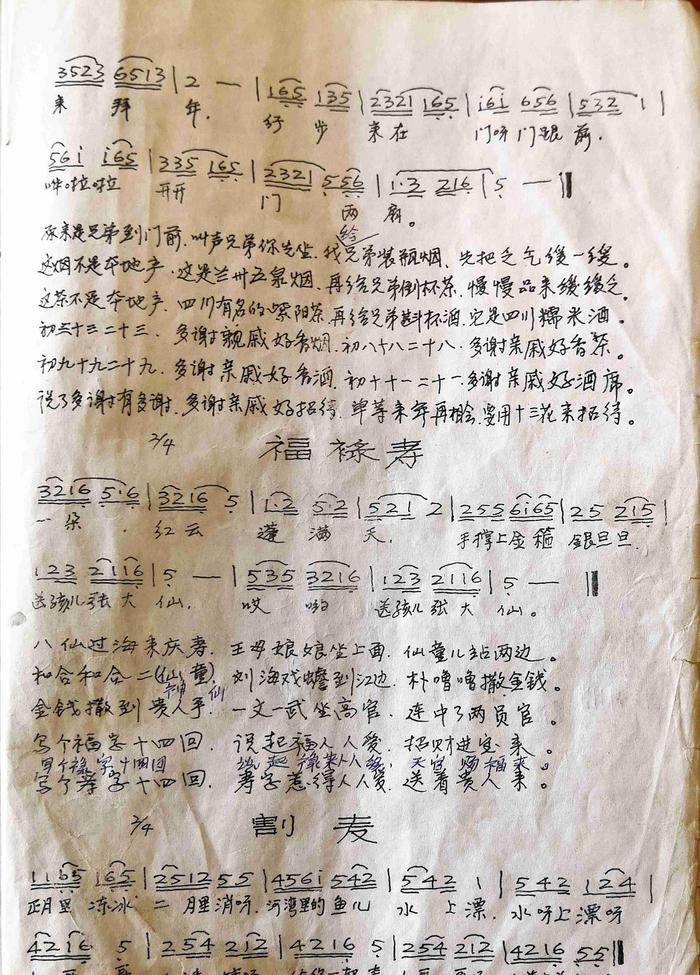 3523 6513 | 2 — | 165 135 | 2321 165 | i6i 656 | 532 1 |
来 拜 年. 行 步 来在 门呀门跟 前.
56i i65 | 335 165 | 2321 556 | 1·3 216 | 5 — ‖
哗啦啦 开开 门 两 扇。
给
原来是兄弟到门前. 叫声兄弟你先坐. 我兄弟装瓶烟. 先把乏气缓一缓。
这烟不是本地产. 这是兰州五泉烟. 再给兄弟倒杯茶. 慢慢品来缓缓乏。
这茶不是本地产. 四川有名的紫阳茶. 再给兄弟斟杯酒. 它是四川糯米酒。
初三十三二十三. 多谢亲戚好香烟. 初八十八二十八. 多谢亲戚好香茶。
初九十九二十九. 多谢亲戚好香酒. 初十十一二十一. 多谢亲戚好酒席。
说了多谢有多谢. 多谢亲戚好招待. 单等来年再相会. 要用十三花来招待。
2/4 福禄寿
3216 5·6 | 3216 5 | 1·2 5·2 | 521 2 | 255 6i65 | 25 215 |
一朵 红云 蓬满 天. 手撑上金箍 銀旦旦.
123 2116 | 5 — | 535 3216 | 123 2116 | 5 — ‖
送孩儿张大 仙. 哎 哟 送孩儿张大 仙。
八仙过海来庆寿. 王母娘娘坐上面. 仙童儿站两边。
和合和合二(仙童). 刘海戏蟾到江边. 朴噜噜撒金钱。
神 仙
金钱撒到贵人手. 一文一武坐高官. 连中了两员官。
写个福字十四回. 说起福人人爱. 招财进宝来。
写个禄字十四回 说起禄来人人爱. 天官赐福来。
写个寿字十四回. 寿字惹得人人爱. 送着贵人来。
2/4 割麦
1165 165 | 2512 55 | 456i 542 | 542 1 | 542 124 |
正月里 冻冰 二月里消呀. 河湾里的鱼儿 水 上漂. 水呀上漂呀
4216 5 | 254 212 | 4216 5 | 254 212 | 4216 55 ‖